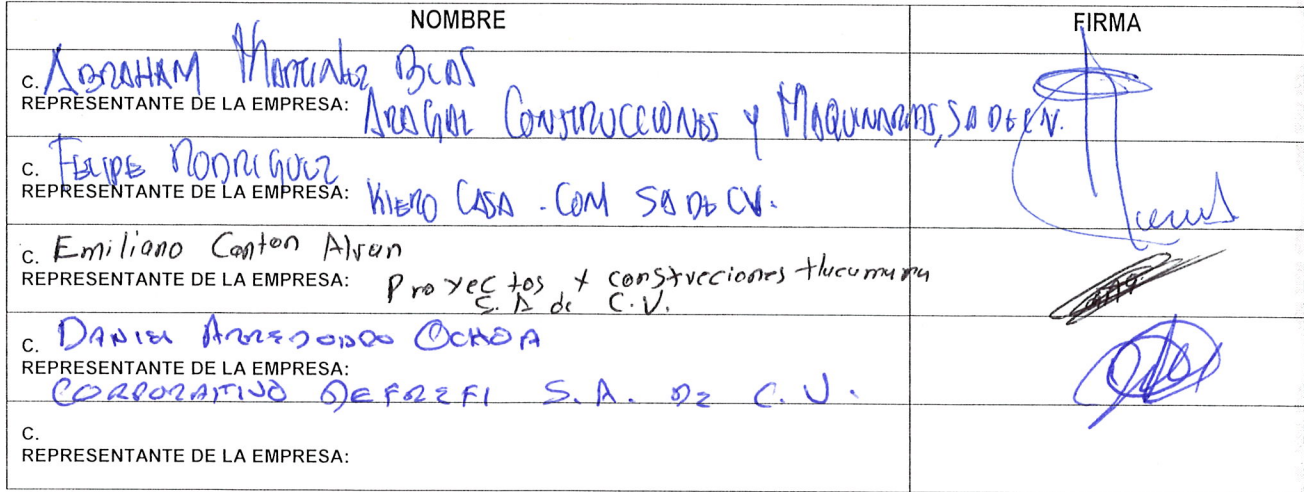 NOMBRE FIRMA
C. ABRAHAM MARTINEZ BLAS
REPRESENTANTE DE LA EMPRESA: ARAGAL CONSTRUCCIONES Y MAQUINARIAS, SA DE CV.
C. FELIPE RODRIGUEZ
REPRESENTANTE DE LA EMPRESA: KIERO CASA .COM SA DE CV.
C. Emiliano Canton Alvan
REPRESENTANTE DE LA EMPRESA: Proyectos y construcciones
S.A de C.V.
C. DANIEL ARREDONDO OCHOA
REPRESENTANTE DE LA EMPRESA:
CORPORATIVO DEFREFI S.A. DE C.V.
C.
REPRESENTANTE DE LA EMPRESA: